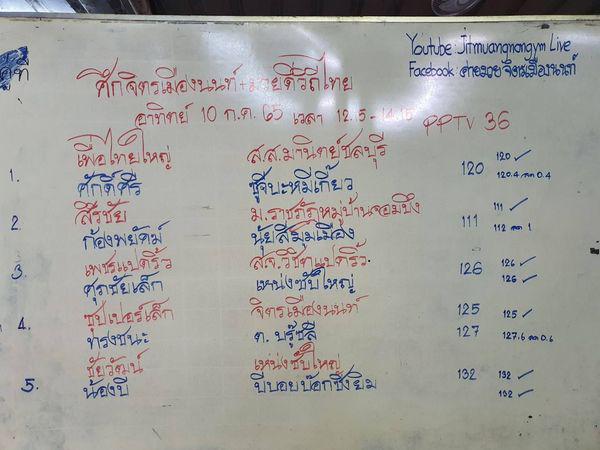 คู่ที่
Youtube Jitmuangnongym Live
Facebook ค่ายมวยจิตรเมืองนนท์
ศึกจิตรเมืองนนท์+มวยดีวิถีไทย
อาทิตย์ 10 ก.ค. 65 เวลา 12.15-14.15 PPTV 36
1.
เพื่อไทยใหญ่ ส.ส.มานิตย์ชลบุรี 120 120 ✓
ศักดิ์ศรี ซูจีบะหมี่เกี๊ยว 120.4 ลด 0.4
2.
สิรชัย ม.ราชภัฏหมู่บ้านจอมบึง 111 111 ✓
ก้องพยัคฆ์ นุ้ยสี่มุมเมือง 112 ลด 1
3.
เพชรแปดริ้ว ส.จ.วิชิตแปดริ้ว 126 126 ✓
ศุภชัยเล็ก เหน่งซับใหญ่ 126 ✓
4.
ซุปเปอร์เล็ก จิตรเมืองนนท์ 125 125 ✓
ทรงชนะ ต. บรู๊ซลี 127 127.6 ลด 0.6
5.
ชัยวัฒน์ เหน่งซับใหญ่ 132 132 ✓
น้องบี บีบอยบ๊อกซิ่งยิม 132 ✓